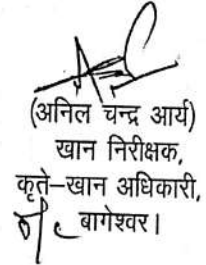 (अनिल चन्द्र आर्य)
खान निरीक्षक,
कृते–खान अधिकारी,
बागेश्वर।